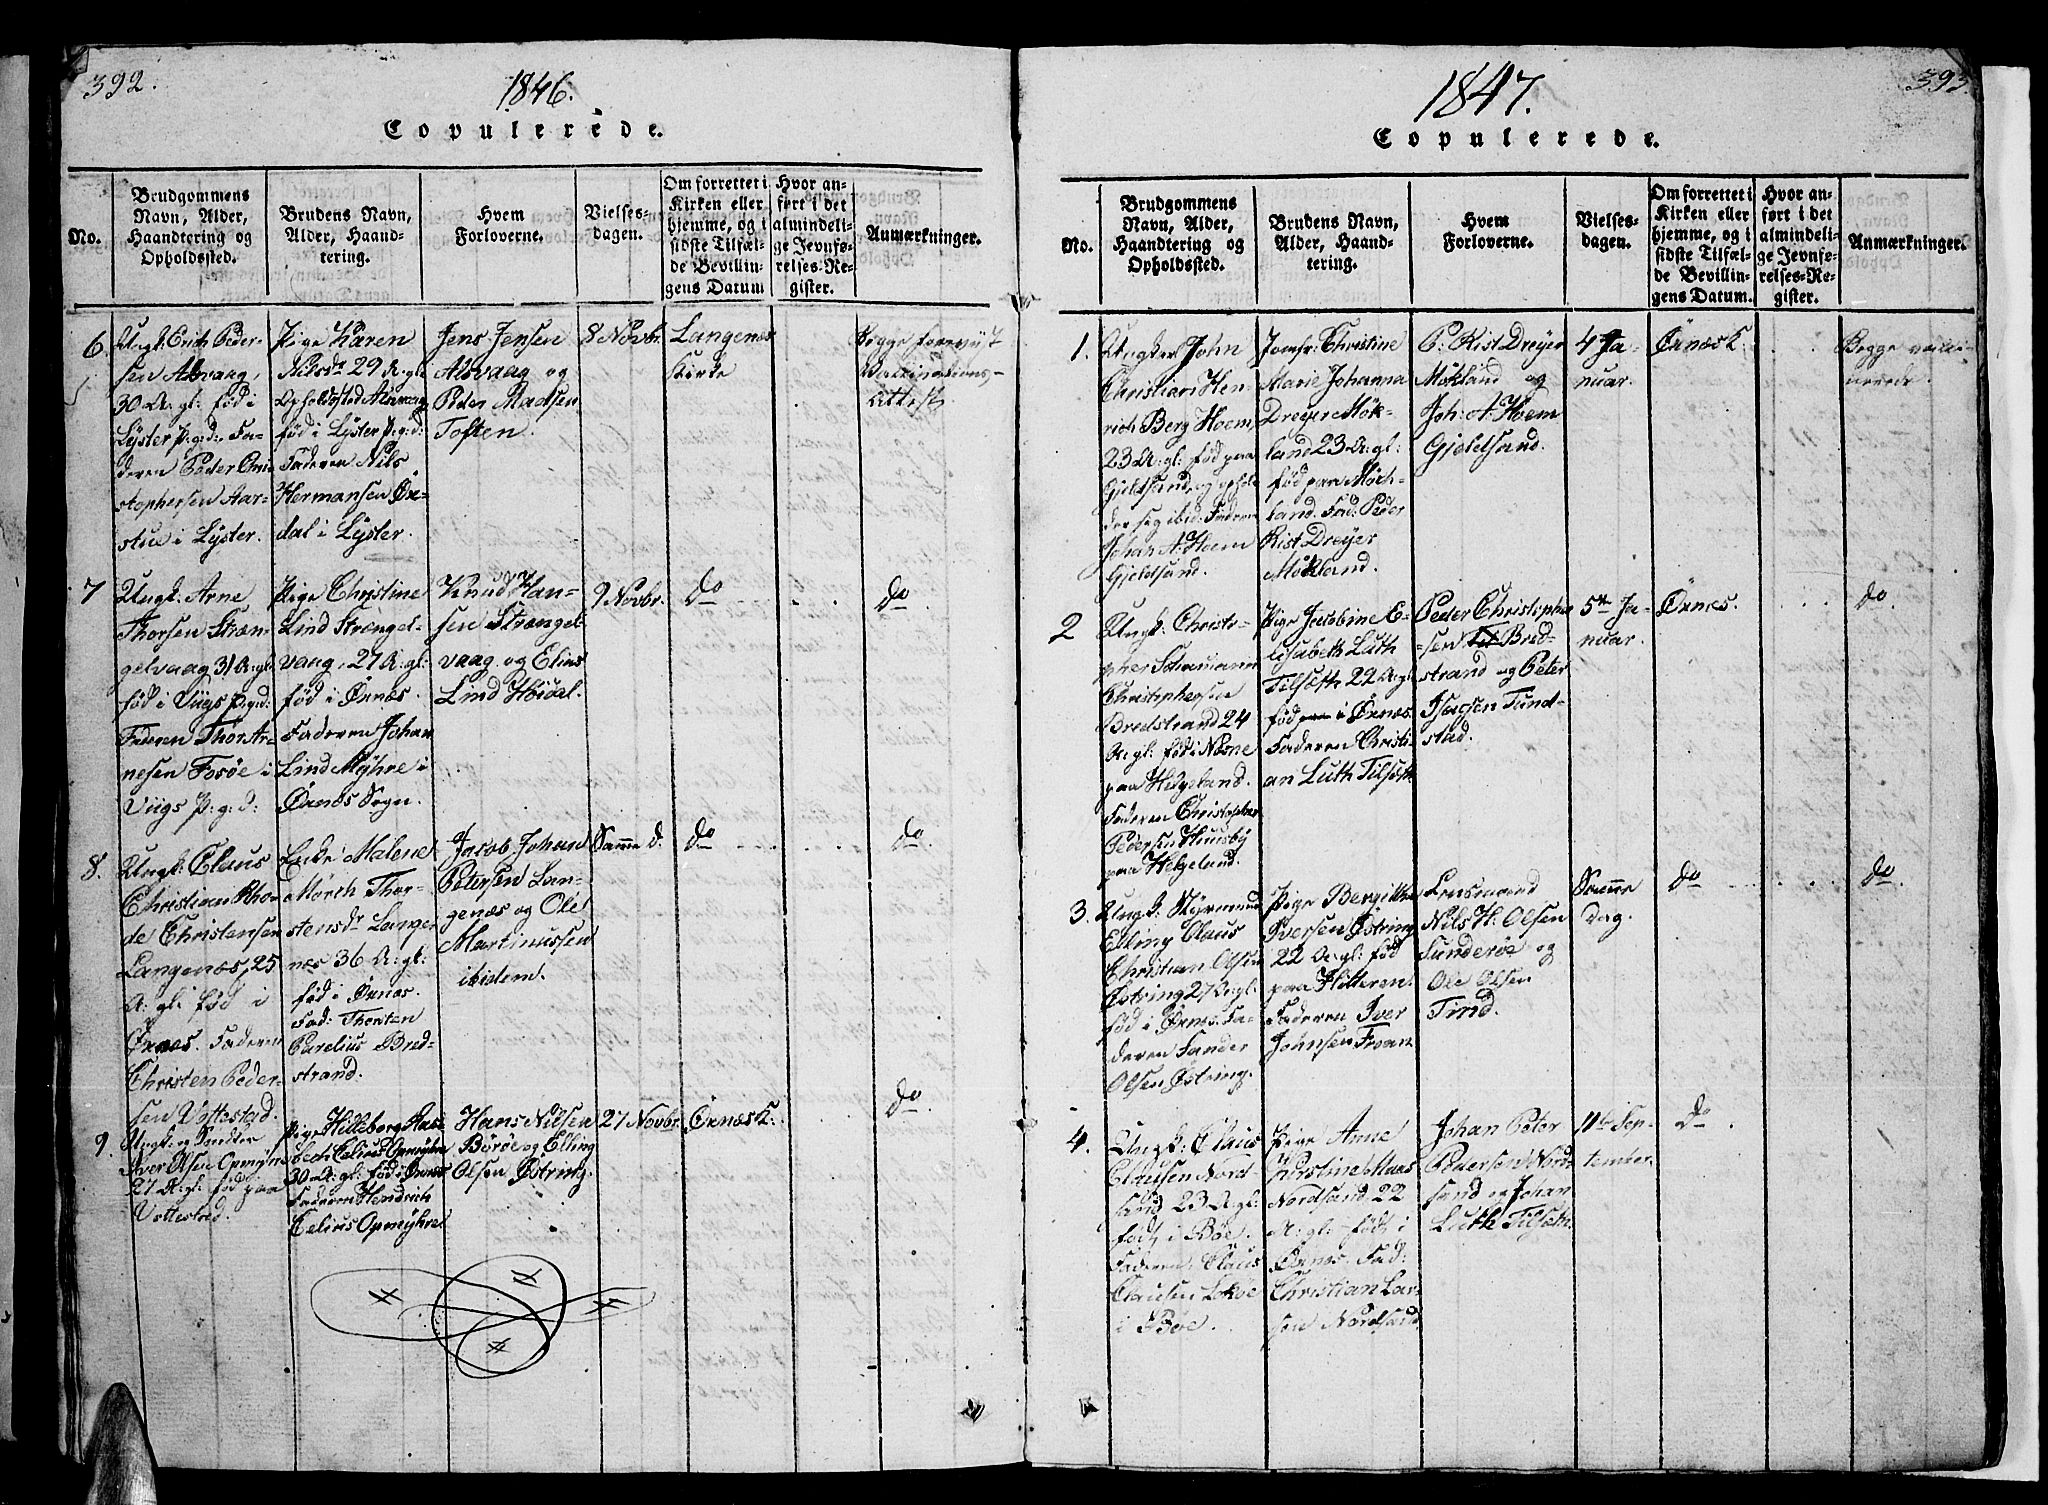 392.
1846.
Copulerede.
No.
Brudgommens
Navn, Alder,
Haandtering og
Opholdssted.
Brudens Navn,
Alder, Haand-
tering.
Hvem
Forloverne.
Vielses-
dagen.
Om forrettet i
Kirken eller
hjemme, og i
sidste Tilfæl-
de Bevillin-
gens Datum
Hvor an-
ført i det
almindeli-
ge Jevnfø-
relses-Re-
gister.
Anmærkninger.
6
Ungk: Erich Peder-
sen Alsvaag,
30 A: gl: fød i
Lyster P: g: d:, Fa-
deren Peder Chri-
stophersen Aar-
stue i Lyster.
Pige Karen
Nilsdr 29 A: gl:
Opholdssted Alsvaag
fød i Lyster P: g: d:
Faderen Nils
Hermansen
dal i Lyster.
Jens Jensen
Alsvaag og
Peder Madsen
Toften.
8 Novbr.
Langenæs
Kirke
Begge foreviist
Vaccinations-
Attest.
7
Ungk: Arne
Thorsen Stræn-
gelvaag 31 A: gl:
fød i Viigs P: g: d:
Faderen Thor Ar-
nesen Fosøe i
Viigs P: g: d:
Pige Christine
Lind Strængel-
vaag, 27 A: gl:
fød i Øxnæs.
Faderen Johan
Lind Myhre i
Øxnæs Sogn.
Knud Han-
sen Strængel-
vaag og Elias
Lind Høidal.
9 Novbr.
do
do
8.
Ungk: Claus
Christian Rho-
de Christensen
Langenæs, 25
A: gl: fød i
Øxnæs. Faderen
Christen Peder-
sen Vottestad.
Enke Malene
Mørch Thor-
stensdr Lange-
næs 36 A: gl:
fød i Øxnæs.
Fad: Thorsten
Parelius Bred-
strand.
Jacob Johan
Petersen Lan-
genæs og Ole
Martinussen
ibidem.
Samme d.
do
do.
9.
Ungk: og
Iver Olsen Opmyhre
27 A: gl: fød paa
Vottestad.
Pige Hilleborg
Celius Opmyhre
30 A: gl: fød i Øxnæs
Faderen Hendrich
Celius Opmyhre
Hans Nilsen
Børøe og Elling
Olsen Østring.
27 Novbr.
Øxnæs K:
do.
393
1847.
Copulerede.
No.
Brudgommens
Navn, Alder,
Haandtering og
Opholdssted.
Brudens Navn,
Alder, Haand-
tering.
Hvem
Forloverne.
Vielses-
dagen.
Om forrettet i
Kirken eller
hjemme, og i
sidste Tilfæl-
de Bevillin-
gens Datum.
Hvor an-
ført i det
almindeli-
ge Jevnfø-
relses-Re-
gister.
Anmærkninger.
1.
Ungker John
Christian Hen-
rich Berg Hoem,
23 A: gl: fød paa
Gjeldsand, og ophol-
der sig ibid: Faderen
Johan A: Hoem
Gjeldsand.
Jomfr: Christine
Marie Johanna
Dreyer Møk-
land 23 A: gl:
fød paa Møk-
land. Fad: Peder
Rist Dreyer
Møkland.
P: Rist Dreyer
Møkland og
Joh: A: Hoem
Gjeldsand.
4 Ja-
nuar.
Øxnæs K.
Begge vacci-
nerede.
2
Ungk: Christo-
pher Schamann
Christophersen
Bredstrand 24
A: gl: fød i Næsne
paa Helgeland.
Faderen Christopher
Pedersen Huusby
paa Helgeland.
Pige Jacobine E-
lisabeth Luth
Tilsæth 22 A: gl:
fød i Øxnæs
Faderen Christi-
an Luth Tilsæth
Peder Christopher-
sen Bred-
strand og Peter
Isacsen Tund-
stad.
5te Ja-
nuar.
Øxnæs.
do.
3.
Ungk:
Elling Claus
Christian Olsen
Østring 27 A: gl:
fød i Øxnæs. Fa-
deren Sander
Olsen Østring.
Pige Bergitha
Iversen Østring
22 A: gl: fød
paa Hitteren.
Faderen Iver
Johnsen Froan
Lensmand
Nils H: Olsen
Sunderøe og
Ole Olsen
Tind.
Samme
Dag.
do
do.
4.
Ungk: Claus
Clausen Nord-
sand 23 A: gl:
født i Bøe.
Faderen, Claus
Clausen
i Bøe.
Pige Anne
Kirstine Maas
Nordsand 22
A: gl: født i
Øxnæs. Fad:
Christian Lar-
sen Nordsand.
Johan Peter
Pedersen Nord-
sand og Johan
Luth Tilsæth.
11te Sep-
tember.
do